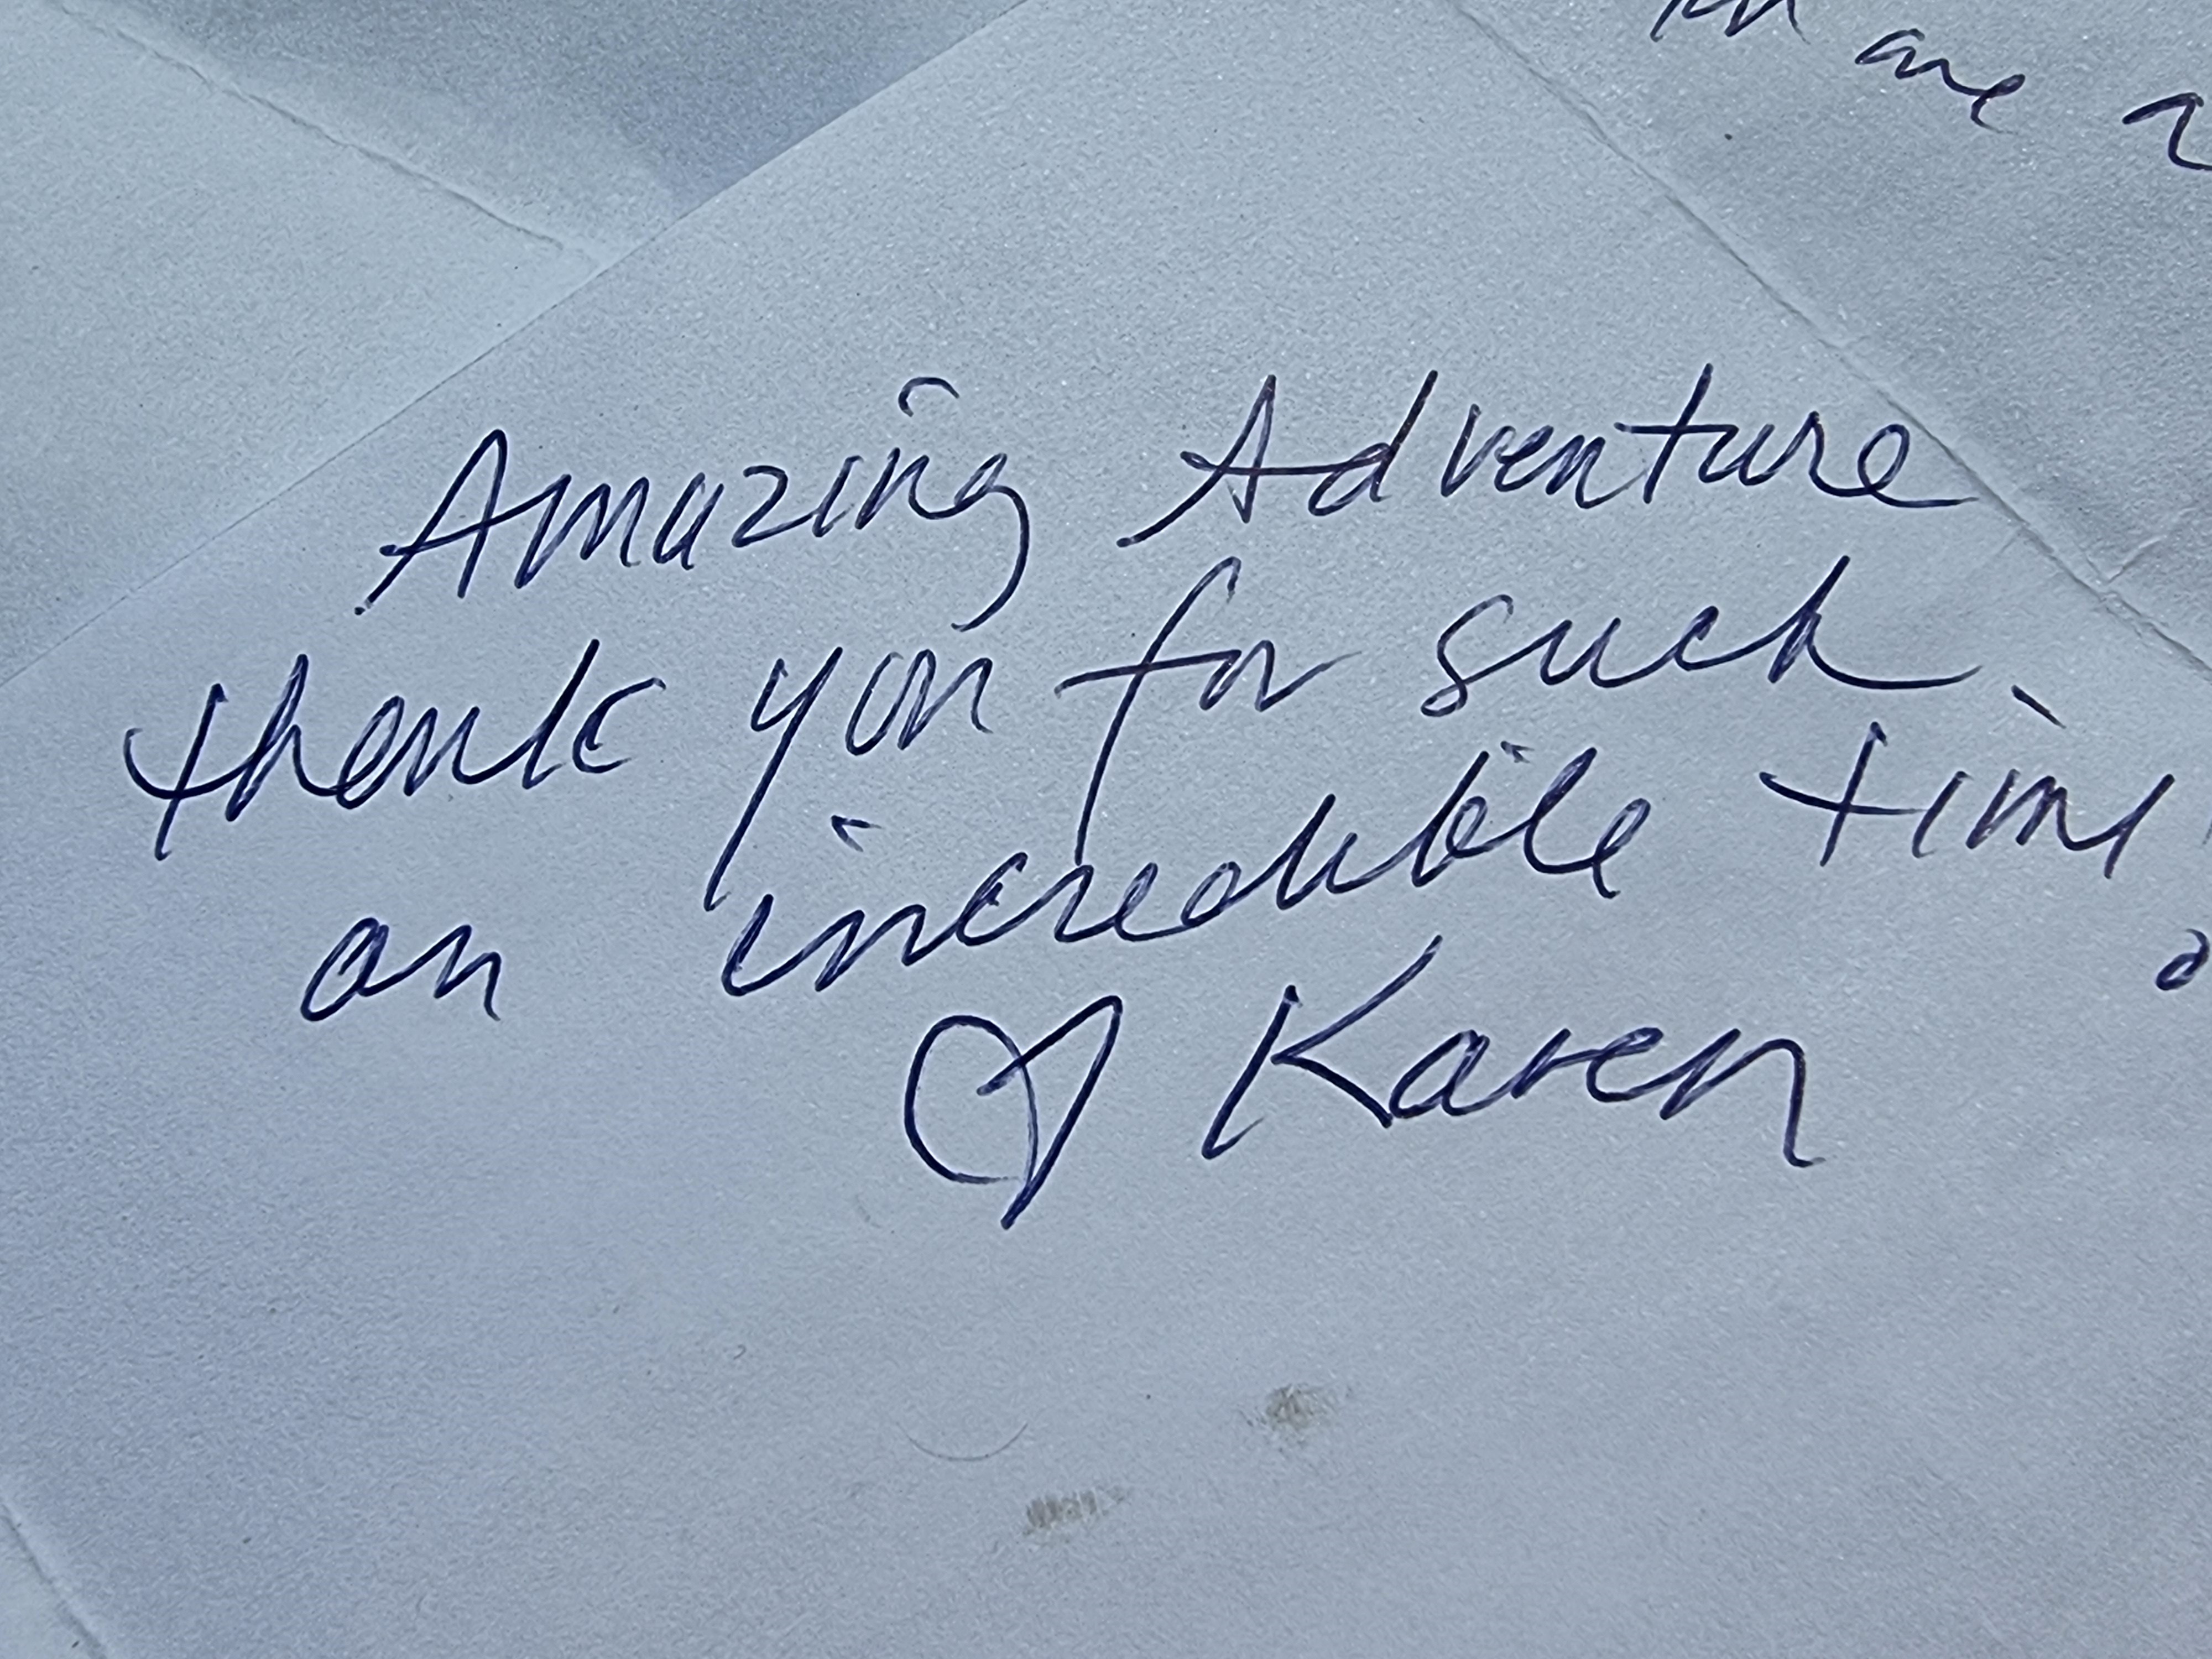 are
Amazing Adventure
thank you for such
an incredible time
♡ Karen